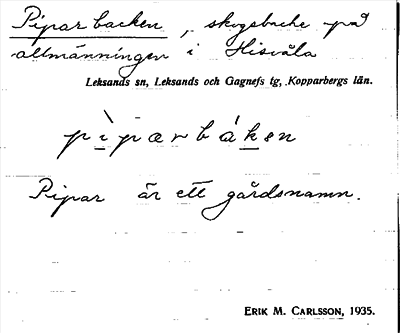 Piparbacken, skogsbacke på
allmänningen i Hisvåla
Leksands sn, Leksands och Gagnefs tg, Kopparbergs län.
pìpærbáken
Pipar är ett gårdsnamn.
ERIK M. CARLSSON, 1935.